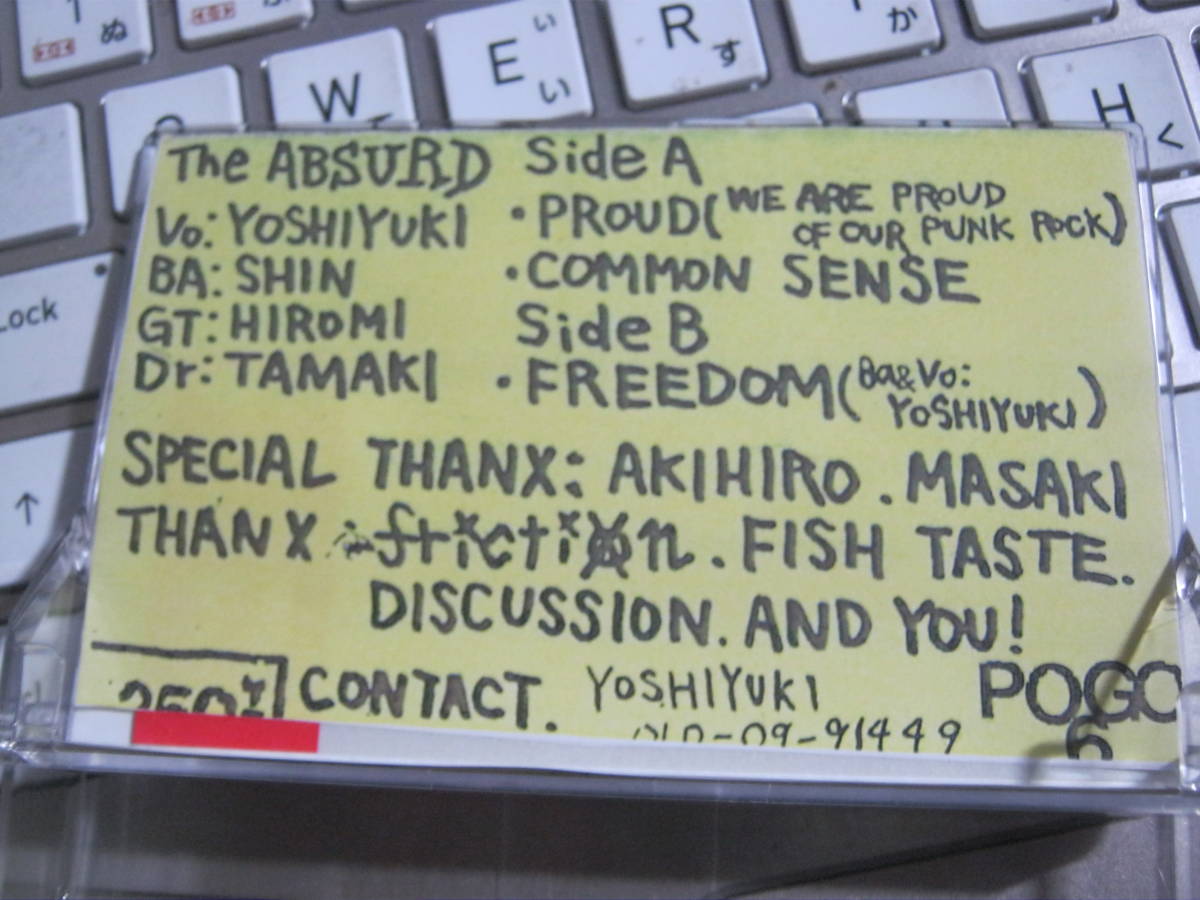 1 ぬ
W て
E い い
R す
か
H く
Lock
↑
The ABSURD
Vo: YOSHIYUKI
BA: SHIN
GT: HIROMI
Dr: TAMAKI
Side A
・PROUD (WE ARE PROUD
OF OUR PUNK ROCK)
・COMMON SENSE
Side B
・FREEDOM (Ba&Vo:
YOSHIYUKI)
SPECIAL THANX: AKIHIRO. MASAKI
THANX friction. FISH TASTE.
DISCUSSION. AND YOU!
CONTACT. YOSHIYUKI
POGO
6